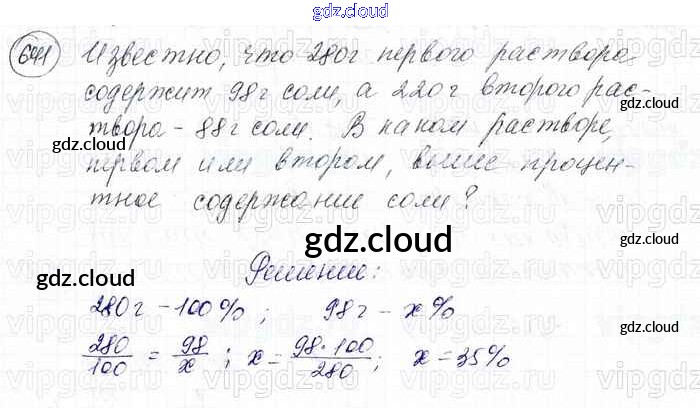 gdz.cloud
641 Известно, что 280г первого раствора
содержит 98г соли, а 220г второго рас-
твора - 88г соли. В каком растворе,
первом или втором, выше процен-
тное содержание соли?
gdz.cloud
gdz.cloud
gdz.cloud
gdz.cloud
Решение:
280г - 100%; 98г - x%
280/100 = 98/x; x = 98·100/280; x = 35%
gdz.cloud
gdz.cloud